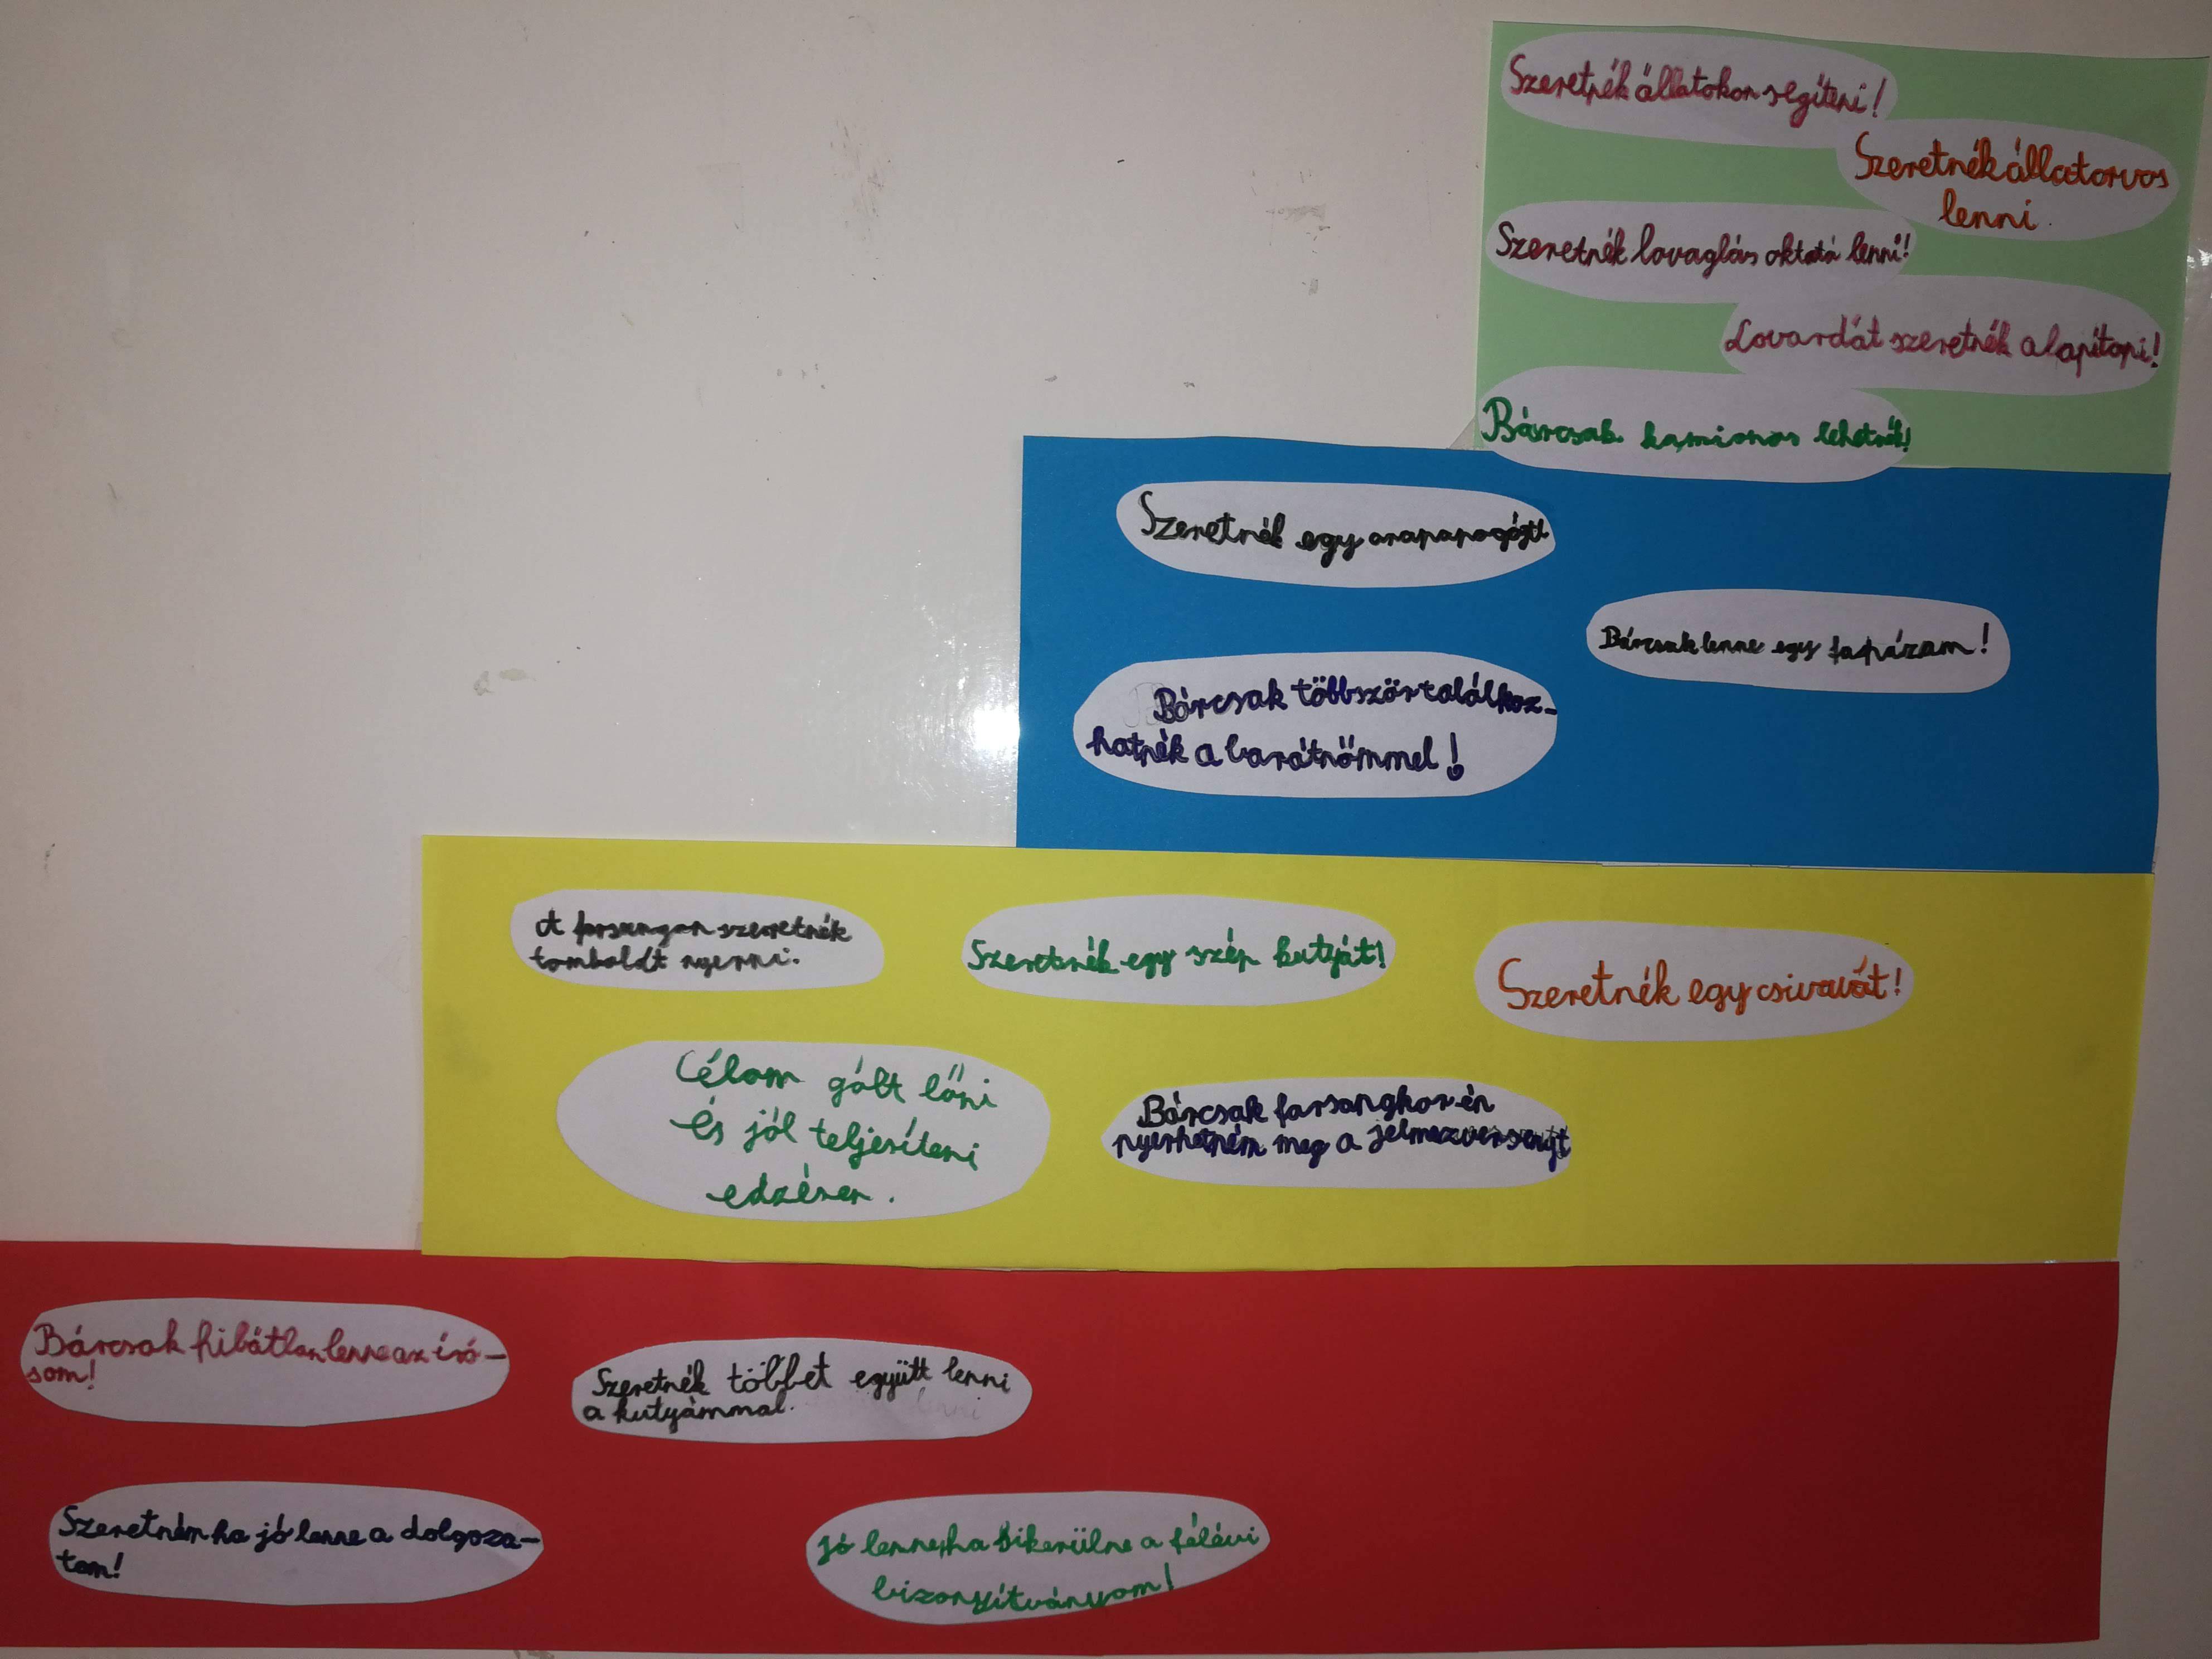 Szeretnék állatokon segíteni!
Szeretnék állatorvos
lenni.
Szeretnék lovaglás oktató lenni!
Lovardát szeretnék alapítani!
Bárcsak kamionos lehetnék!
Szeretnék egy arapapagájt!
Bárcsak lenne egy faházam!
Bárcsak többször találkoz-
hatnék a barátnőmmel!
A farsangon szeretnék
tombolát nyerni.
Szeretnék egy szép kutyát!
Szeretnék egy csivavát!
Célom gólt lőni
és jól teljesíteni
edzésen.
Bárcsak farsangkor én
nyerhetném meg a jelmezversenyt
Bárcsak hibátlan lenne az írá-
som!
Szeretnék többet együtt lenni
a kutyámmal.
Szeretném ha jó lenne a dolgoza-
tom!
Jó lenne, ha sikerülne a félévi
bizonyítványom!